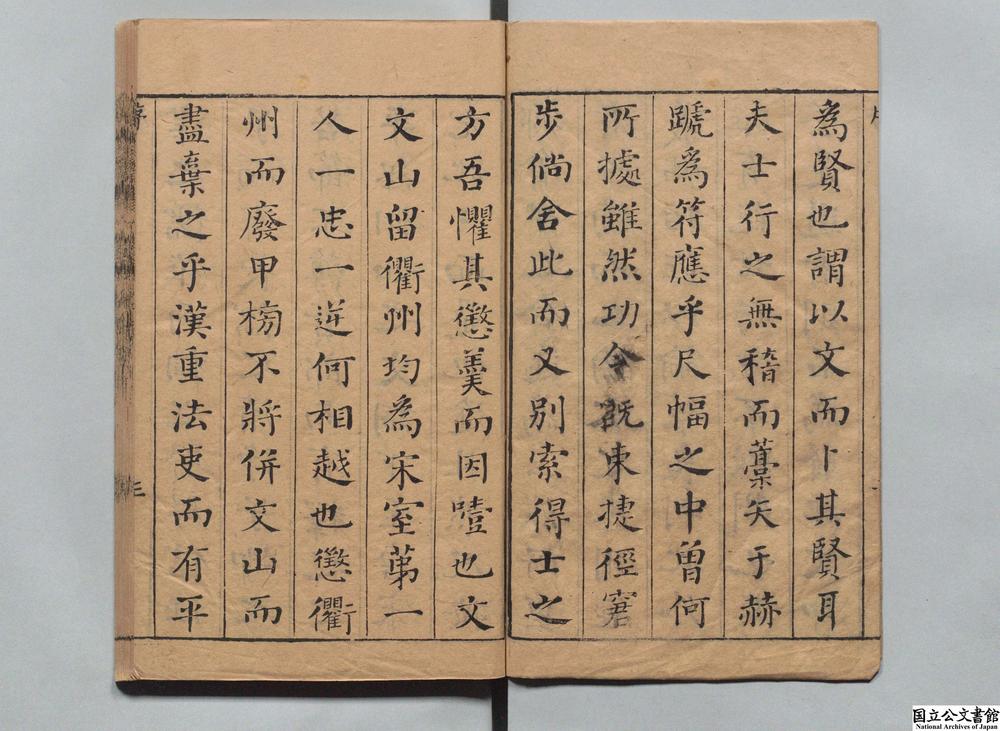 為賢也謂以文而卜其賢耳
夫士行之無稽而藁矢于赫
蹏爲符應乎尺幅之中曽何
所㩀雖然功令既東捷徑窘
步倘舍此而又别索得士之
方吾懼其懲羹而因噎也文
文山留衢州均為宋室苐一
人一忠一逆何相越也懲衢
州而廢甲榜不將併文山而
盡棄之乎漢重法吏而有平
序
三
国立公文書館
National Archives of Japan